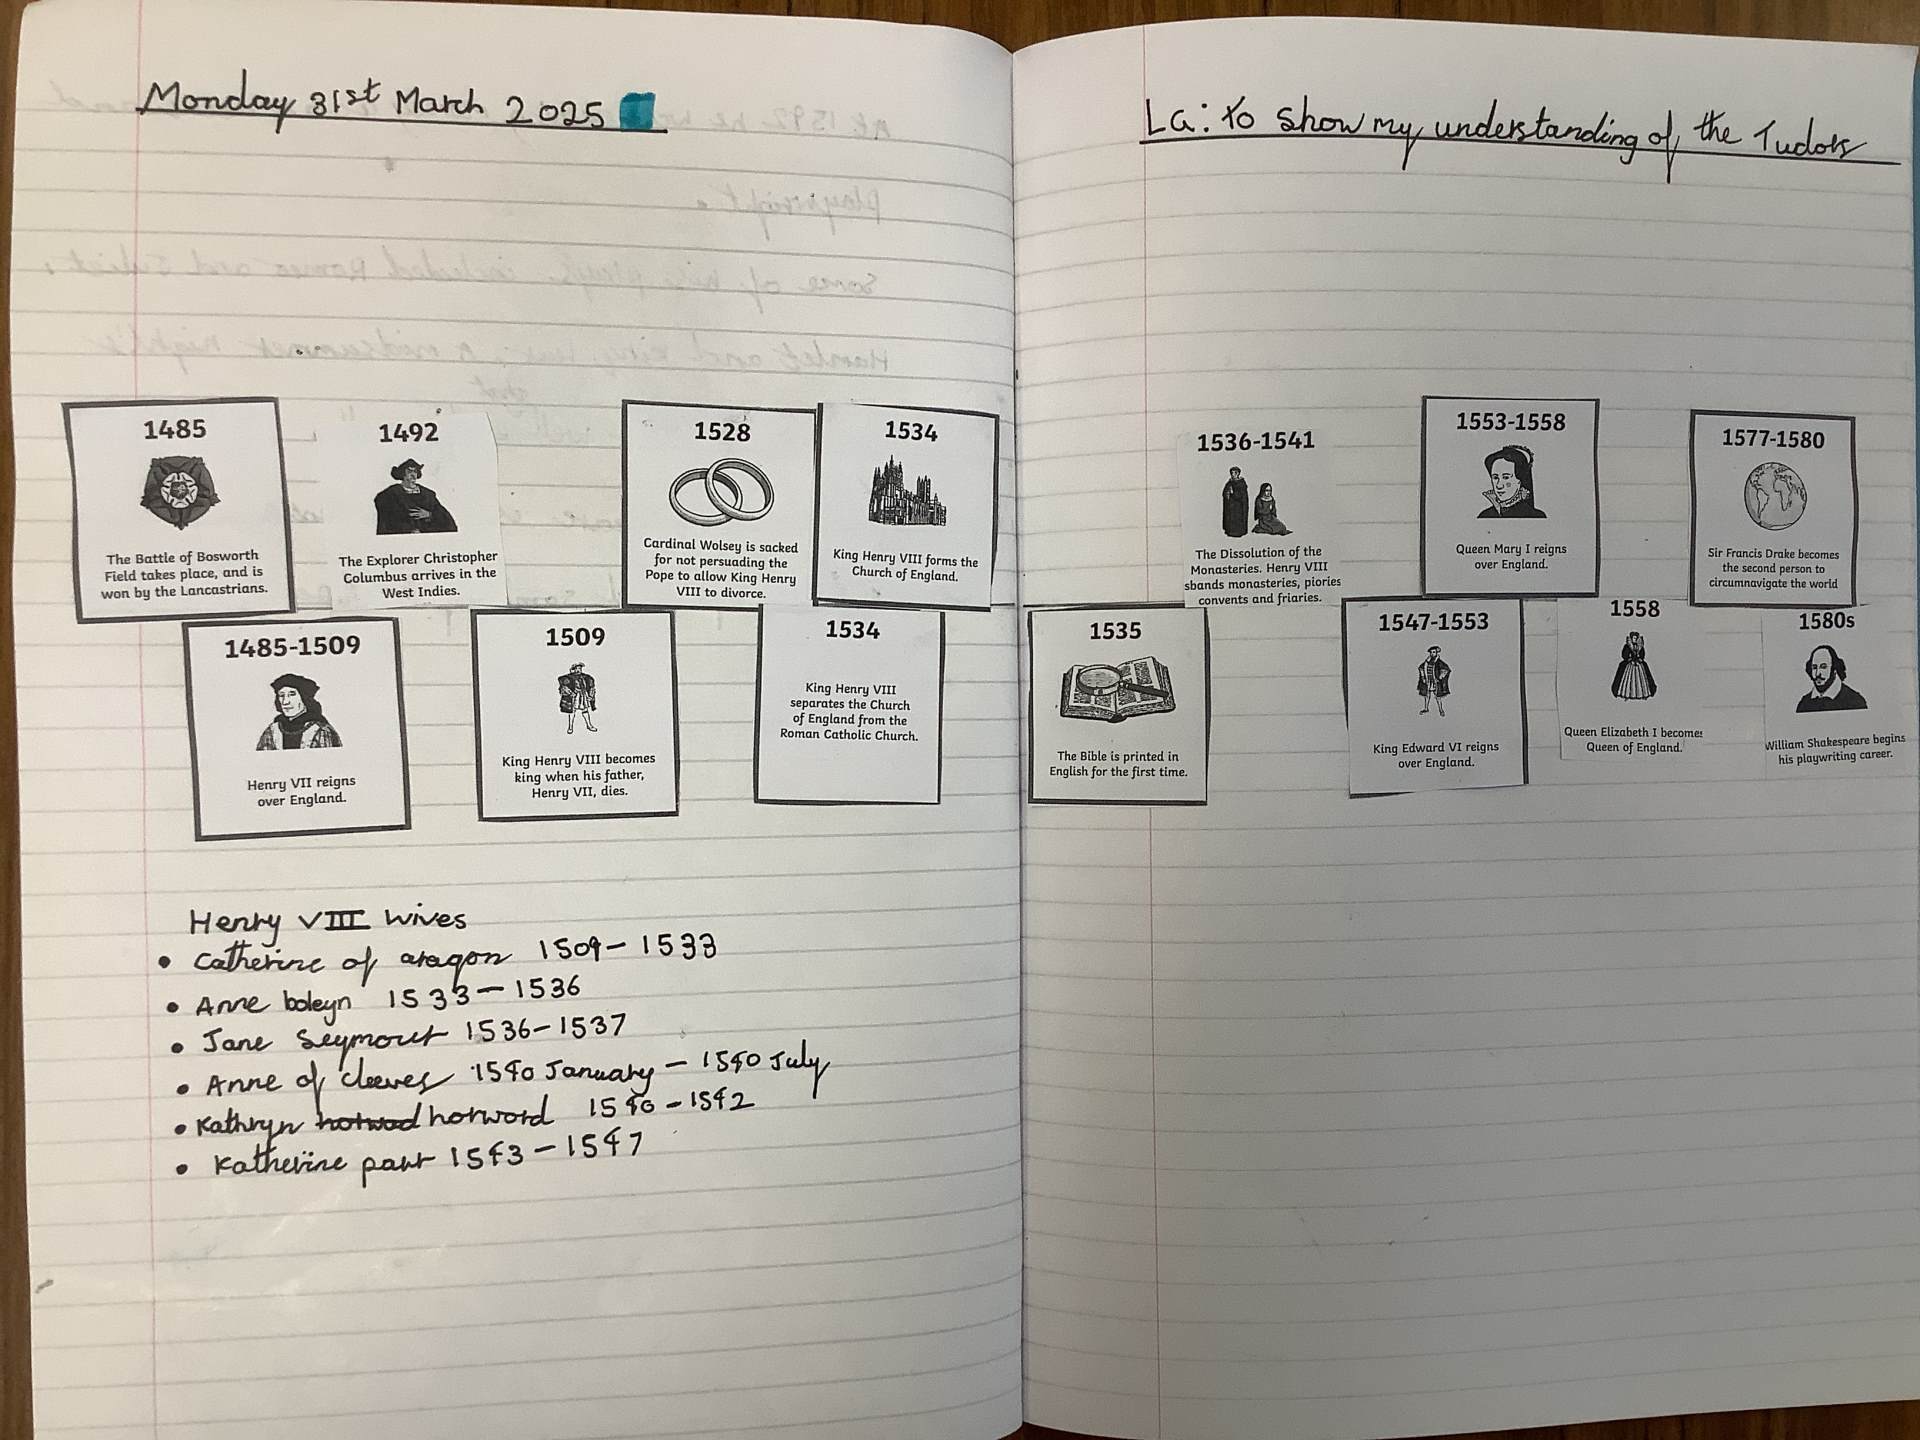 Monday 31st March 2025
La: to show my understanding of the Tudors
1485
The Battle of Bosworth
Field takes place, and is
won by the Lancastrians.
1492
The Explorer Christopher
Columbus arrives in the
West Indies.
1528
Cardinal Wolsey is sacked
for not persuading the
Pope to allow King Henry
VIII to divorce.
1534
King Henry VIII forms the
Church of England.
1485-1509
Henry VII reigns
over England.
1509
King Henry VIII becomes
king when his father,
Henry VII, dies.
1534
King Henry VIII
separates the Church
of England from the
Roman Catholic Church.
1536-1541
The Dissolution of the
Monasteries. Henry VIII
sbands monasteries, piories
convents and friaries.
1553-1558
Queen Mary I reigns
over England.
1577-1580
Sir Francis Drake becomes
the second person to
circumnavigate the world
1535
The Bible is printed in
English for the first time.
1547-1553
King Edward VI reigns
over England.
1558
Queen Elizabeth I becomes
Queen of England.
1580s
William Shakespeare begins
his playwriting career.
Henry VIII wives
• Catherine of aragon 1509-1533
• Anne boleyn 1533-1536
• Jane Seymour 1536-1537
• Anne of cleeves 1540 January - 1540 July
• Kathryn horword 1540-1542
• Katherine parr 1543-1547